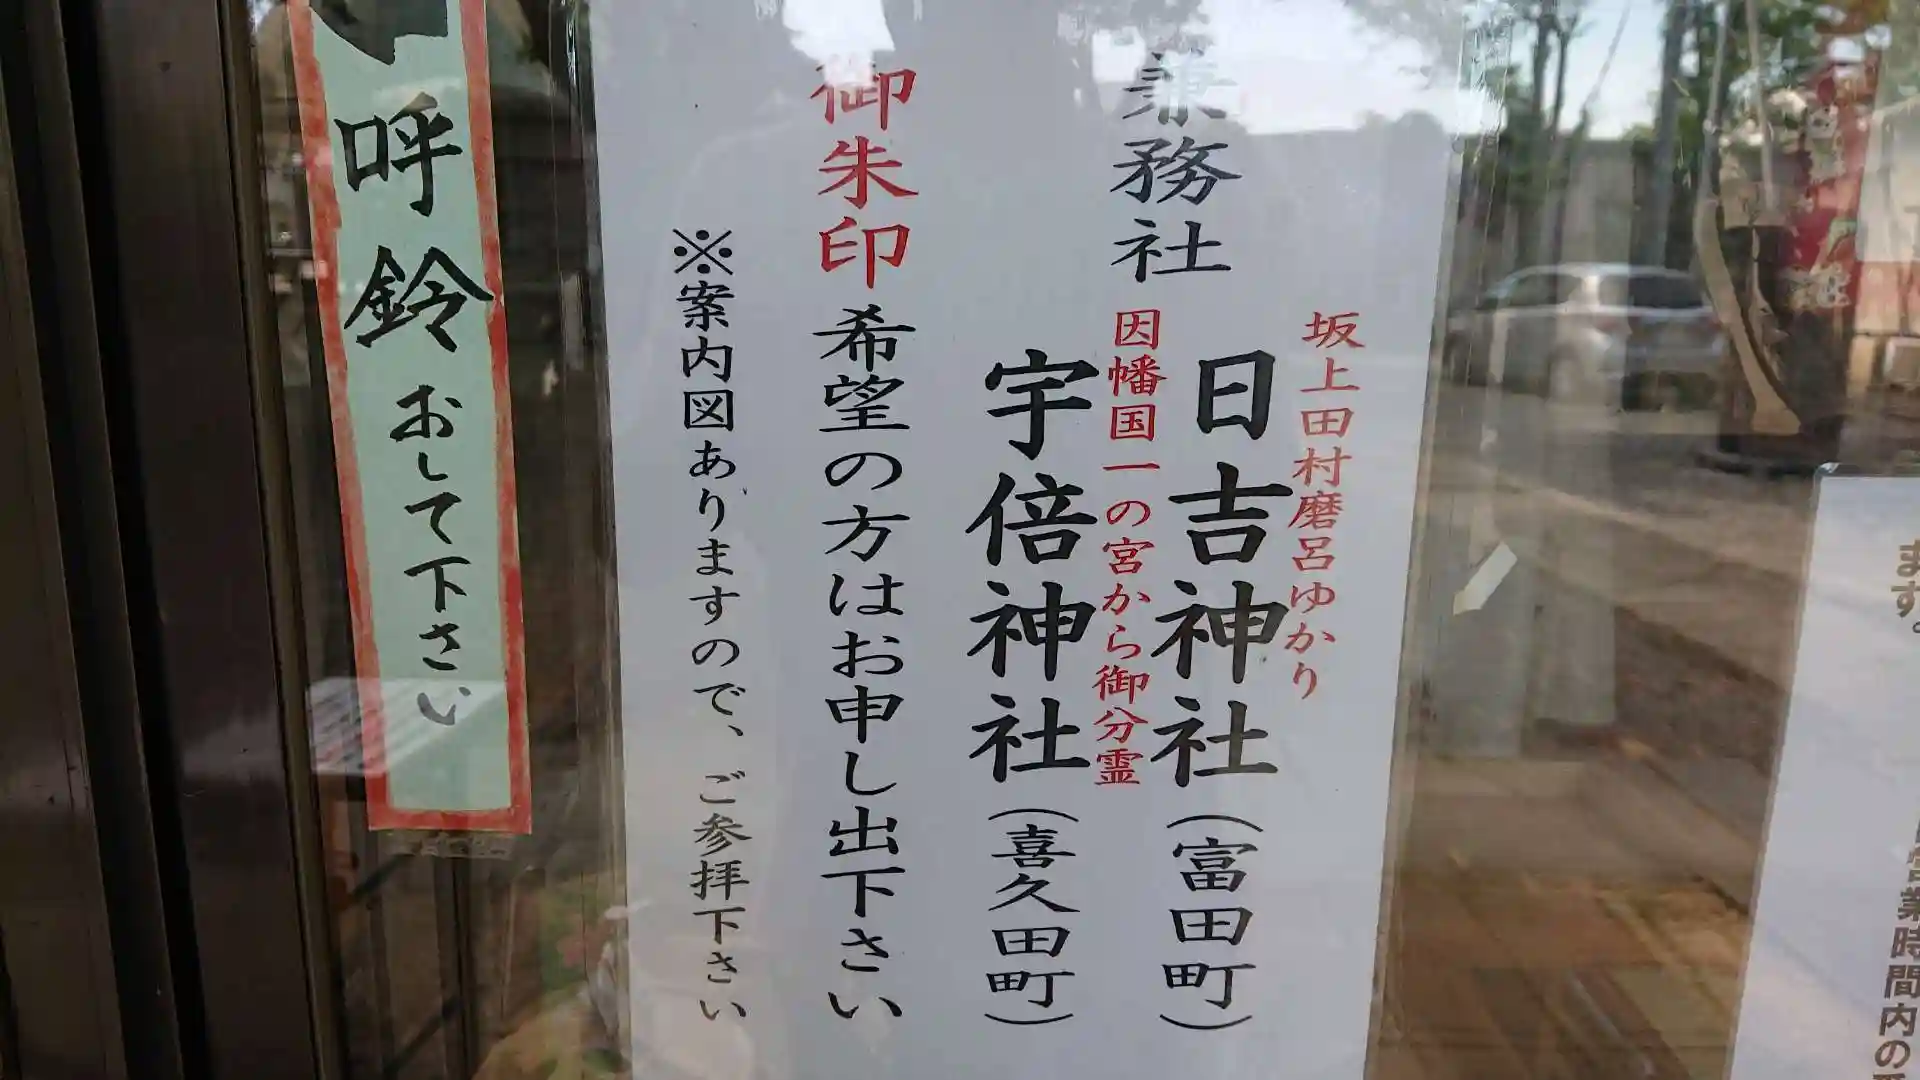 坂上田村麿呂ゆかり
兼務社 日吉神社(富田町)
因幡国一の宮から御分霊
宇倍神社(喜久田町)
御朱印希望の方はお申し出下さい
※案内図ありますので、ご参拝下さい
呼鈴おして下さい
ます。
営業時間内の